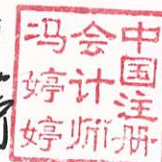 中国注册
会计师
冯婷婷